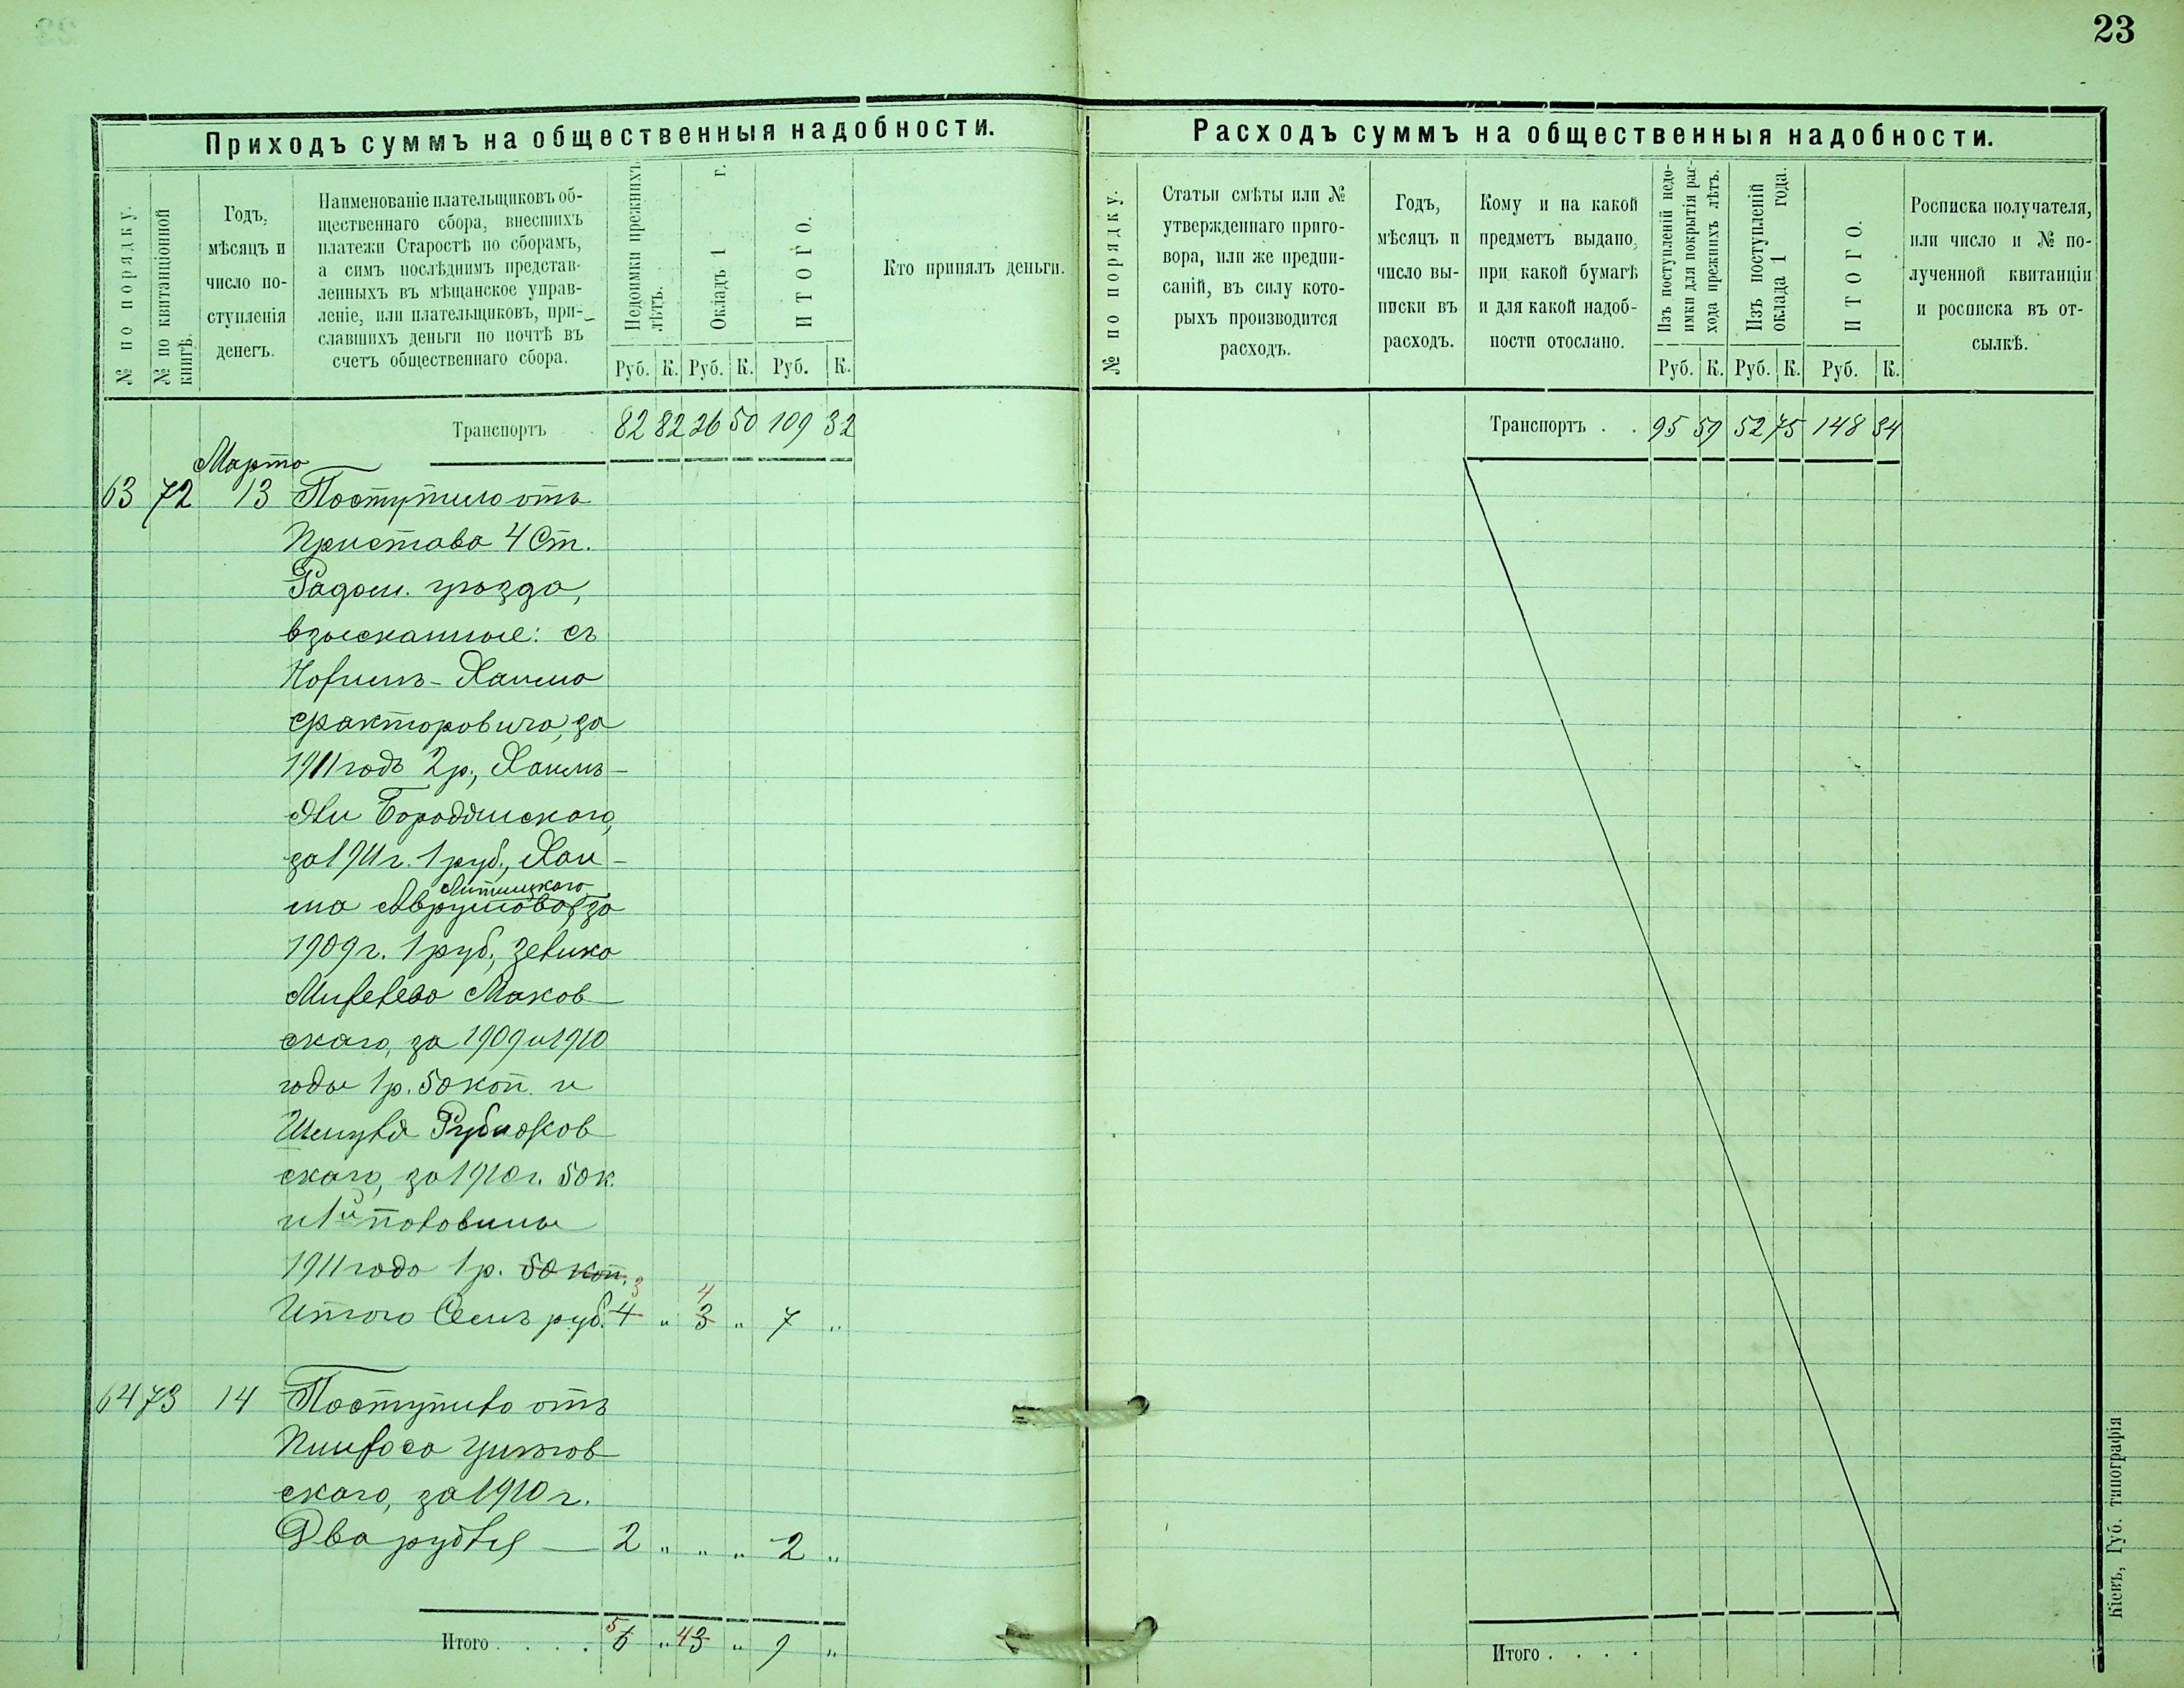 23
Приходъ суммъ на общественныя надобности.
№ по порядку.
№ по квитанціонной
книгѣ.
Годъ,
мѣсяцъ и
число по-
ступленія
денегъ.
Наименованіе плательщиковъ об-
щественнаго сбора, внесшихъ
платежи Старостѣ по сборамъ,
а симъ послѣднимъ представ-
ленныхъ въ мѣщанское управ-
леніе, или плательщиковъ, при-
славшихъ деньги по почтѣ въ
счетъ общественнаго сбора.
Недоимки прежнихъ
лѣтъ.
Окладъ 1 г.
ИТОГО.
Руб. К. Руб. К. Руб. К.
Кто принялъ деньги.
Транспортъ 82 82 26 50 109 32
Марта
63 72 13 Поступило отъ
Пристава 4 Ст.
Радом. уѣзда,
взысканные: съ
Хаима
Факторовича, за
1911 годъ 2 р., Хаимъ-
за 1911 г. 1 руб., Хаи-
Липницкого
ма Аврумова, за
1909 г. 1 руб., Зелика
Маков-
скаго, за 1909 и 1910
годы 1 р. 50 коп. и
Шмуля
скаго, за 1910 г. 50 к.
и 1й половины
1911 года 1 р. 50 коп.
3 4
Итого Семь руб. 4 " 3 " 7 "
64 73 14 Поступило отъ
Пинхоса
скаго, за 1910 г.
Два рубля — 2 " " " 2 "
Итого . . . . 5 6 " 4 3 " 9 "
Расходъ суммъ на общественныя надобности.
№ по порядку.
Статьи смѣты или №
утвержденнаго приго-
вора, или же предпи-
саній, въ силу кото-
рыхъ производится
расходъ.
Годъ,
мѣсяцъ и
число вы-
писки въ
расходъ.
Кому и на какой
предметъ выдано,
при какой бумагѣ
и для какой надоб-
ности отослано.
Изъ поступленій недо-
имки для покрытія рас-
хода прежнихъ лѣтъ.
Изъ поступленій
оклада 1 года.
ИТОГО.
Руб. К. Руб. К. Руб. К.
Росписка получателя,
или число и № по-
лученной квитанціи
и росписка въ от-
сылкѣ.
Транспортъ . . 95 59 52 75 148 34
Итого . . . .
Кіевъ, Губ. типографія